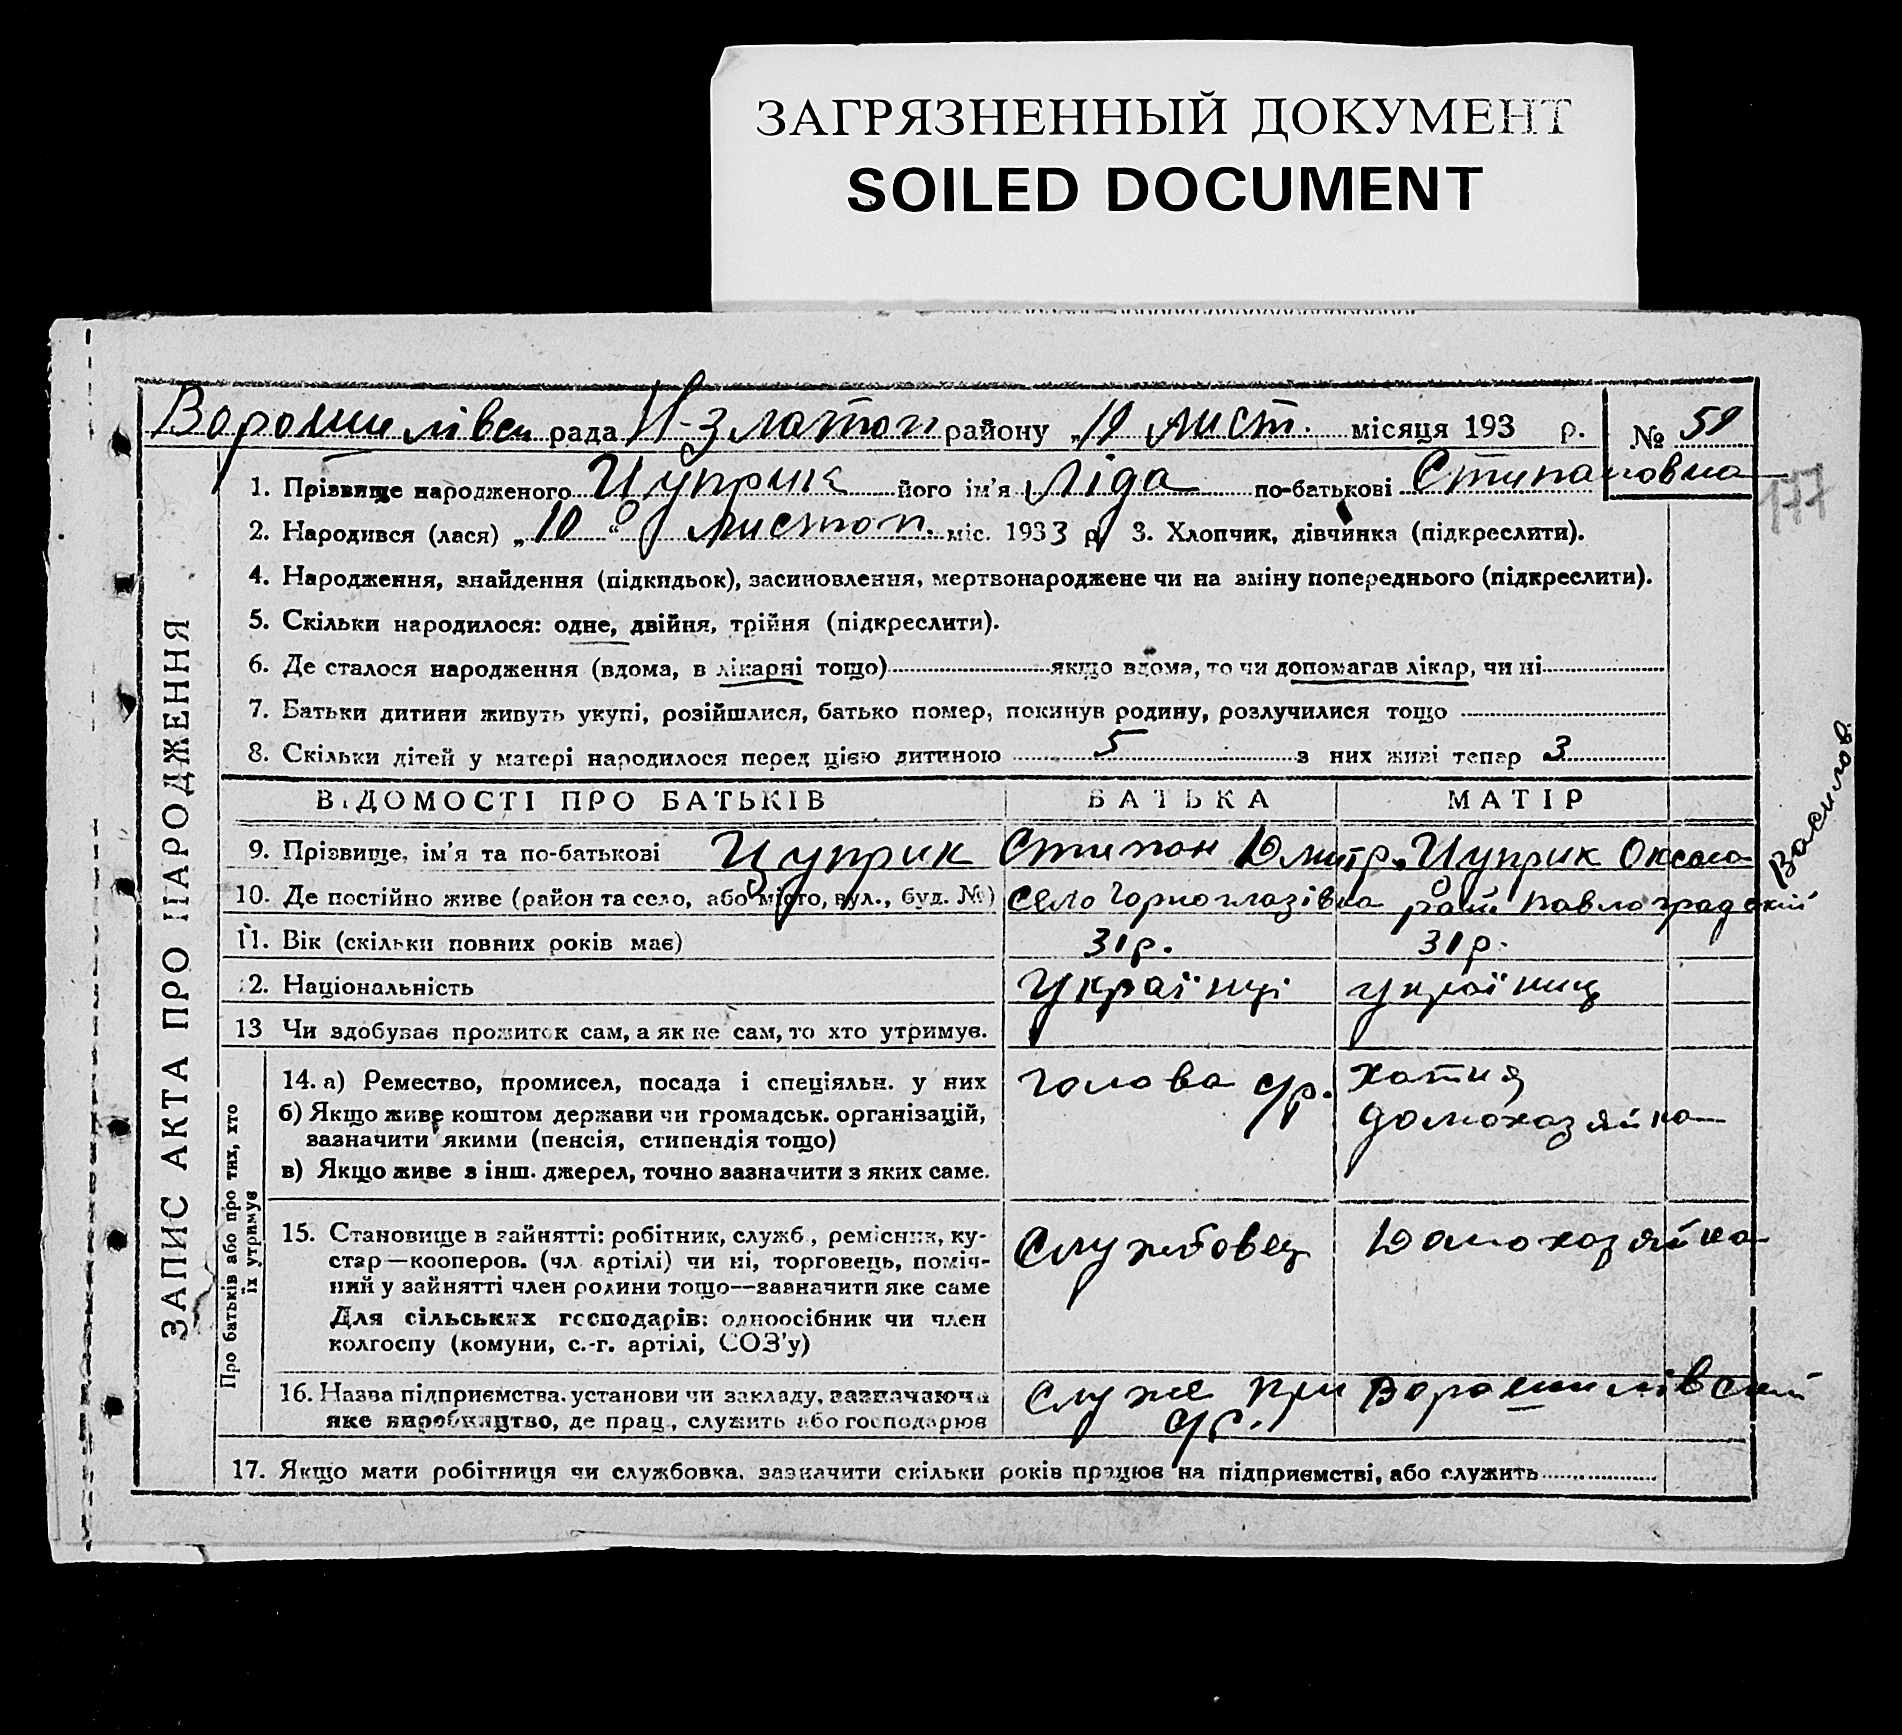 ЗАГРЯЗНЕННЫЙ ДОКУМЕНТ
SOILED DOCUMENT
рада Н-Златоп району „19 лист. місяця 193 р. № 59
1. Прізвище народженого Цуприк його ім'я Ліда по-батькові Стипановна
177
2. Народився (лася) „10“ листоп. міс. 1933 р. 3. Хлопчик, дівчинка (підкреслити).
4. Народження, знайдення (підкидьок), засиновлення, мертвонароджене чи на зміну попереднього (підкреслити).
5. Скільки народилося: одне, двійня, трійня (підкреслити).
6. Де сталося народження (вдома, в лікарні тощо) якщо вдома, то чи допомагав лікар, чи ні
7. Батьки дитини живуть укупі, розійшлися, батько помер, покинув родину, розлучилися тощо
8. Скільки дітей у матері народилося перед цією дитиною 5 з них живі тепер 3
ЗАПИС АКТА ПРО НАРОДЖЕННЯ
ВІДОМОСТІ ПРО БАТЬКІВ БАТЬКА МАТІР
9. Прізвище, ім'я та по-батькові Цуприк Стипан Дмитр. Цуприк Оксана
Васілов.
10. Де постійно живе (район та село, або місто, вул., буд. №) село рай. Павлоградский
11. Вік (скільки повних років має) 31 р. 31 р.
12. Національність Українці україниц
13 Чи здобуває прожиток сам, а як не сам, то хто утримує.
Про батьків або про тих, хто
їх утримує
14. а) Ремество, промисел, посада і спеціяльн. у них голова с/р. хатня
б) Якщо живе коштом держави чи громадськ. організацій, домохазяйка
зазначити якими (пенсія, стипендія тощо)
в) Якщо живе з інш. джерел, точно зазначити з яких саме.
15. Становище в зайнятті: робітник, служб., ремісник, ку- Службовец Домохазяйка
стар—кооперов. (чл. артілі) чи ні, торговець, поміч-
ний у зайнятті член родини тощо—зазначити яке саме
Для сільських господарів: одноосібник чи член
колгоспу (комуни, с.-г. артілі, СОЗ'у)
16. Назва підприємства, установи чи закладу, зазначаючи служе при Ворошилівский
яке виробництво, де прац., служить або господарює с/р.
17. Якщо мати робітниця чи службовка, зазначити скільки років працює на підприємстві, або служить